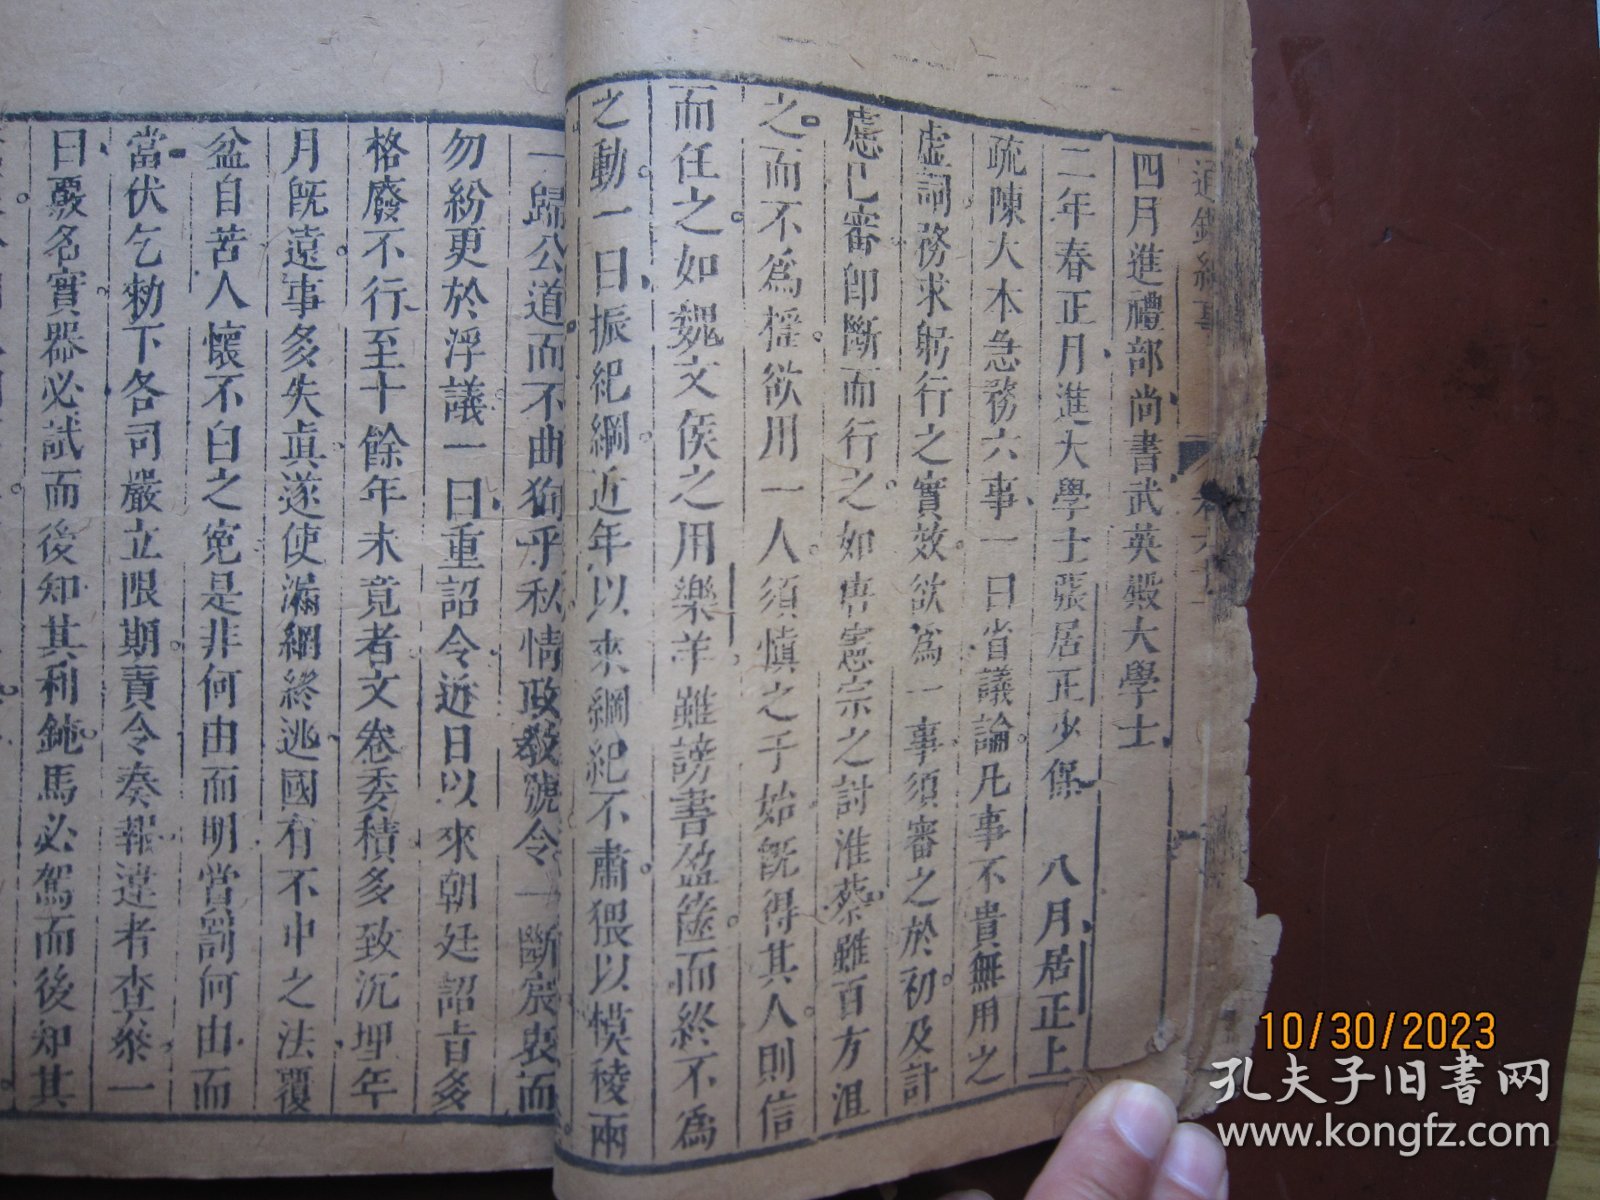 四月進禮部尚書武英殿大學士
二年春正月進大學士張居正少保　八月居正上
疏陳大本急務六事一曰省議論凡事不貴無用之
虛詞務求躬行之實效欲為一事須審之於初及計
慮已審即斷而行之如唐憲宗之討淮蔡雖百方沮
之而不為搖欲用一人須慎之于始既得其人則信
而任之如魏文侯之用樂羊雖謗書盈篋而終不為
之動一曰振紀綱近年以來綱紀不肅猥以模稜兩
一歸公道而不曲狥乎私情政教號令一斷宸衷而
勿紛更於浮議一曰重詔令近日以來朝廷詔旨多
格廢不行至十餘年未竟者文卷委積多致沉埋年
月既遠事多失眞遂使漏網終逃國有不中之法覆
盆自苦人懷不白之寃是非何由而明賞罰何由而
當伏乞勑下各司嚴立限期責令奏報違者查叅一
曰覈名實器必試而後知其利鈍馬必駕而後知其
10/30/2023
孔夫子旧書网
www.kongfz.com